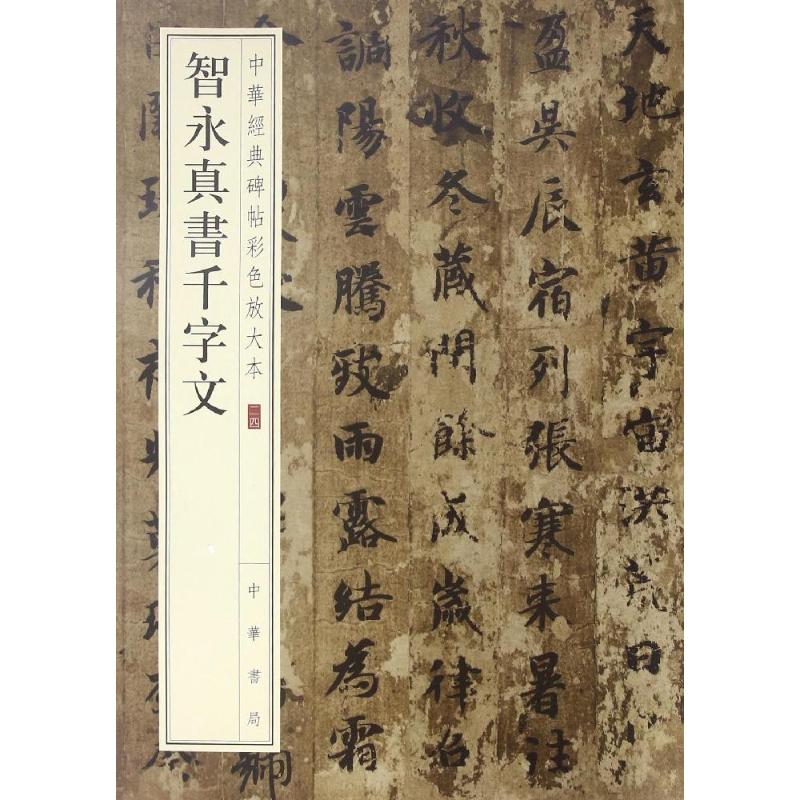 智永真書千字文
中華經典碑帖彩色放大本
二四
中華書局
天地玄黄宇宙洪荒日
盈昃辰宿列張寒来暑往
秋收冬藏閏餘成歲律召
調陽雲騰致雨露結為霜